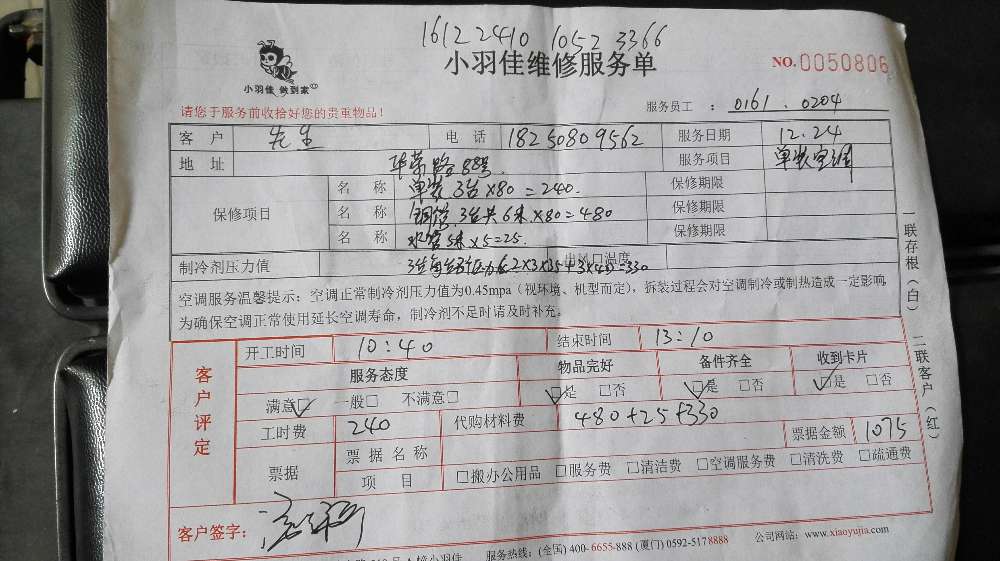 16122410 1052 3366
小羽佳维修服务单
NO.0050806
小羽佳 做到家
请您于服务前收拾好您的贵重物品!
服务员工 : 0161.0204
客户 先生 电话 18250809562 服务日期 12.24
地址 华荣路88号 服务项目 单装空调
保修项目
名称 单装3台×80=240. 保修期限
名称 铜管.3台共6米×80=480 保修期限
名称 水管5米×5=25. 保修期限
制冷剂压力值 出风口温度 2×3×35+3×40=330
空调服务温馨提示:空调正常制冷剂压力值为0.45mpa(视环境、机型而定),拆装过程会对空调制冷或制热造成一定影响
为确保空调正常使用延长空调寿命,制冷剂不足时请及时补充。
一联存根(白) 二联客户(红)
客户评定
开工时间 10:40 结束时间 13:10
服务态度 物品完好 备件齐全 收到卡片
满意☑ 一般□ 不满意□ ☑是 □否 ☑是 □否 ☑是 □否
工时费 240 代购材料费 480+25+330 票据金额 1075
票据 票据名称
项目 □搬办公用品 □服务费 □清洁费 □空调服务费 □清洗费 □疏通费
客户签字:
服务热线:(全国)400-6655-888 (厦门)0592-5178888 公司网站:www.xiaoyujia.com